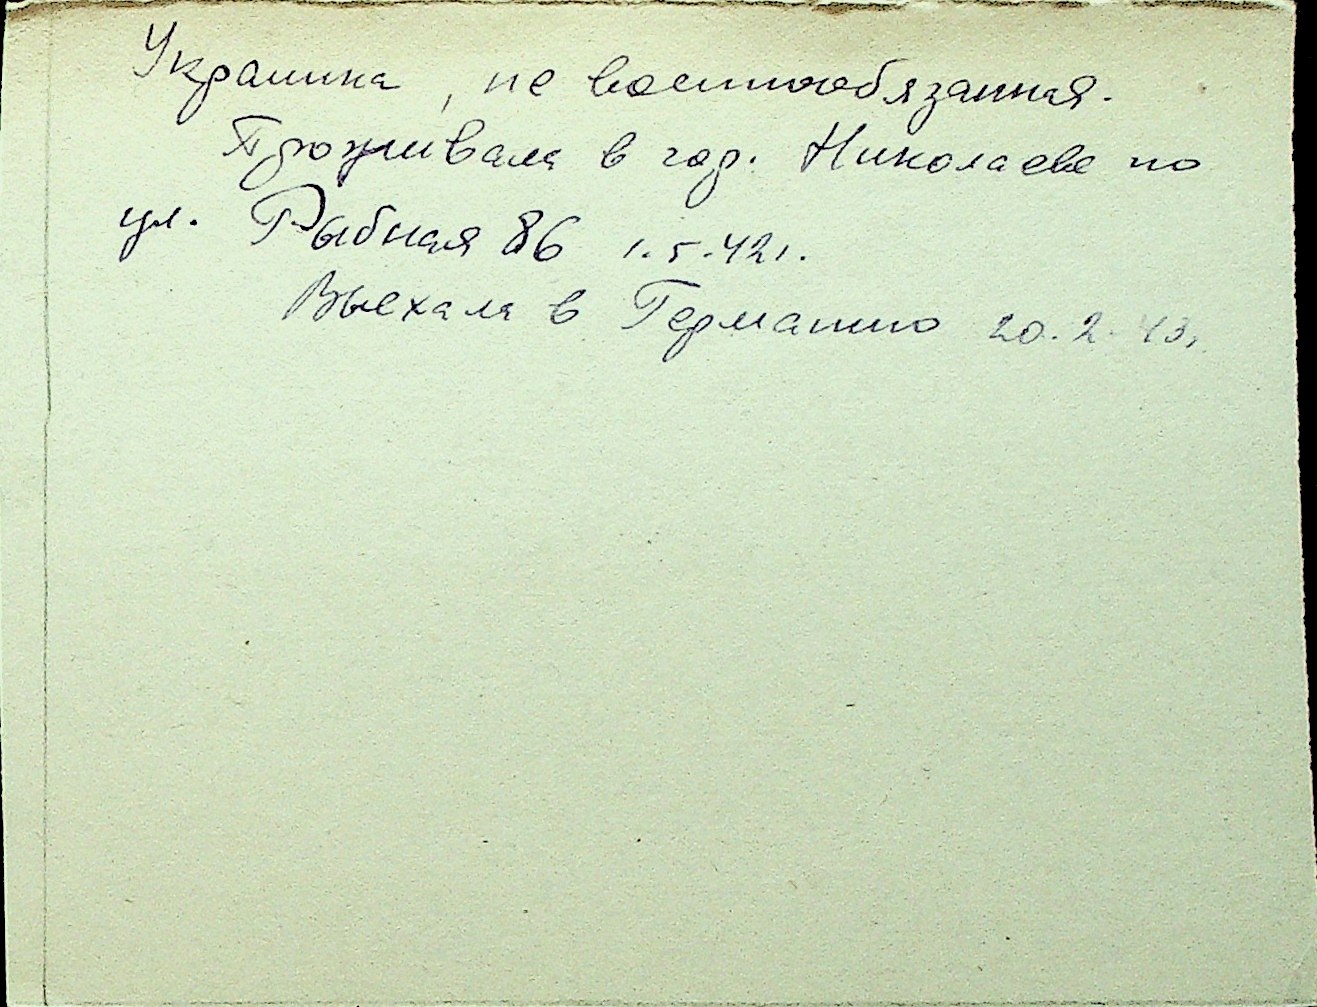 Украинка, не военнообязанная.
Проживала в гор. Николаеве по
ул. Рыбная 86 1.5.42г.
Выехала в Германию 20.2.43г.